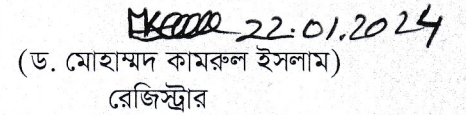 22.01.2024
(ড. মোহাম্মদ কামরুল ইসলাম)
রেজিস্ট্রার